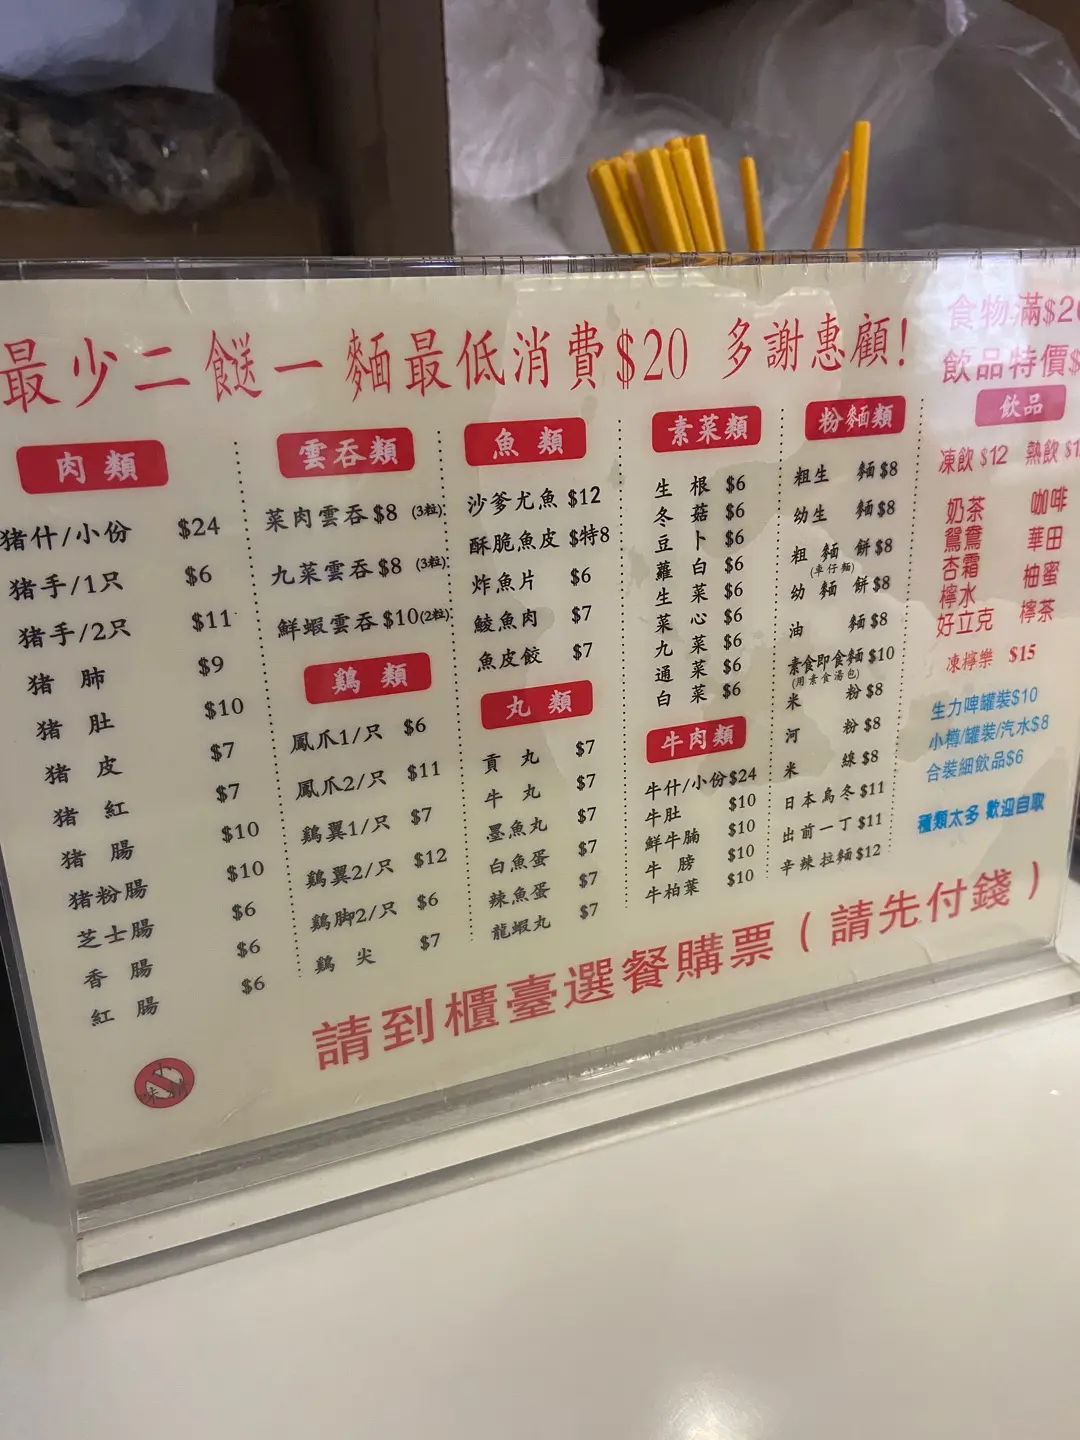 最少二餸一麵最低消費$20 多謝惠顧!
肉類
猪什/小份 $24
猪手/1只 $6
猪手/2只 $11
猪肺 $9
猪肚 $10
猪皮 $7
猪紅 $7
猪腸 $10
猪粉腸 $10
芝士腸 $6
香腸 $6
紅腸 $6
雲吞類
菜肉雲吞 $8 (3粒)
九菜雲吞 $8 (3粒)
鮮蝦雲吞 $10 (2粒)
鷄類
鳳爪1/只 $6
鳳爪2/只 $11
鷄翼1/只 $7
鷄翼2/只 $12
鷄脚2/只 $6
鷄尖 $7
魚類
沙爹尤魚 $12
酥脆魚皮 $特8
炸魚片 $6
鯪魚肉 $7
魚皮餃 $7
丸類
貢丸 $7
牛丸 $7
墨魚丸 $7
白魚蛋 $7
辣魚蛋 $7
龍蝦丸 $7
素菜類
生根 $6
冬菇 $6
豆卜 $6
蘿白 $6
生菜 $6
菜心 $6
九菜 $6
通菜 $6
白菜 $6
牛肉類
牛什/小份 $24
牛肚 $10
鮮牛腩 $10
牛膀 $10
牛柏葉 $10
粉麵類
粗生麵 $8
幼生麵 $8
粗麵餅 $8
(車仔麵)
幼麵餅 $8
油麵 $8
素食即食麵 $10
(用素食湯包)
米粉 $8
河粉 $8
米線 $8
日本烏冬 $11
出前一丁 $11
辛辣拉麵 $12
食物滿$20
飲品特價$
飲品
凍飲 $12 熱飲
奶茶 咖啡
鴛鴦 華田
杏霜 柚蜜
檸水 檸茶
好立克
凍檸樂 $15
生力啤罐裝$10
小樽/罐裝/汽水$8
合裝細飲品$6
種類太多 歡迎自取
請到櫃臺選餐購票(請先付錢)